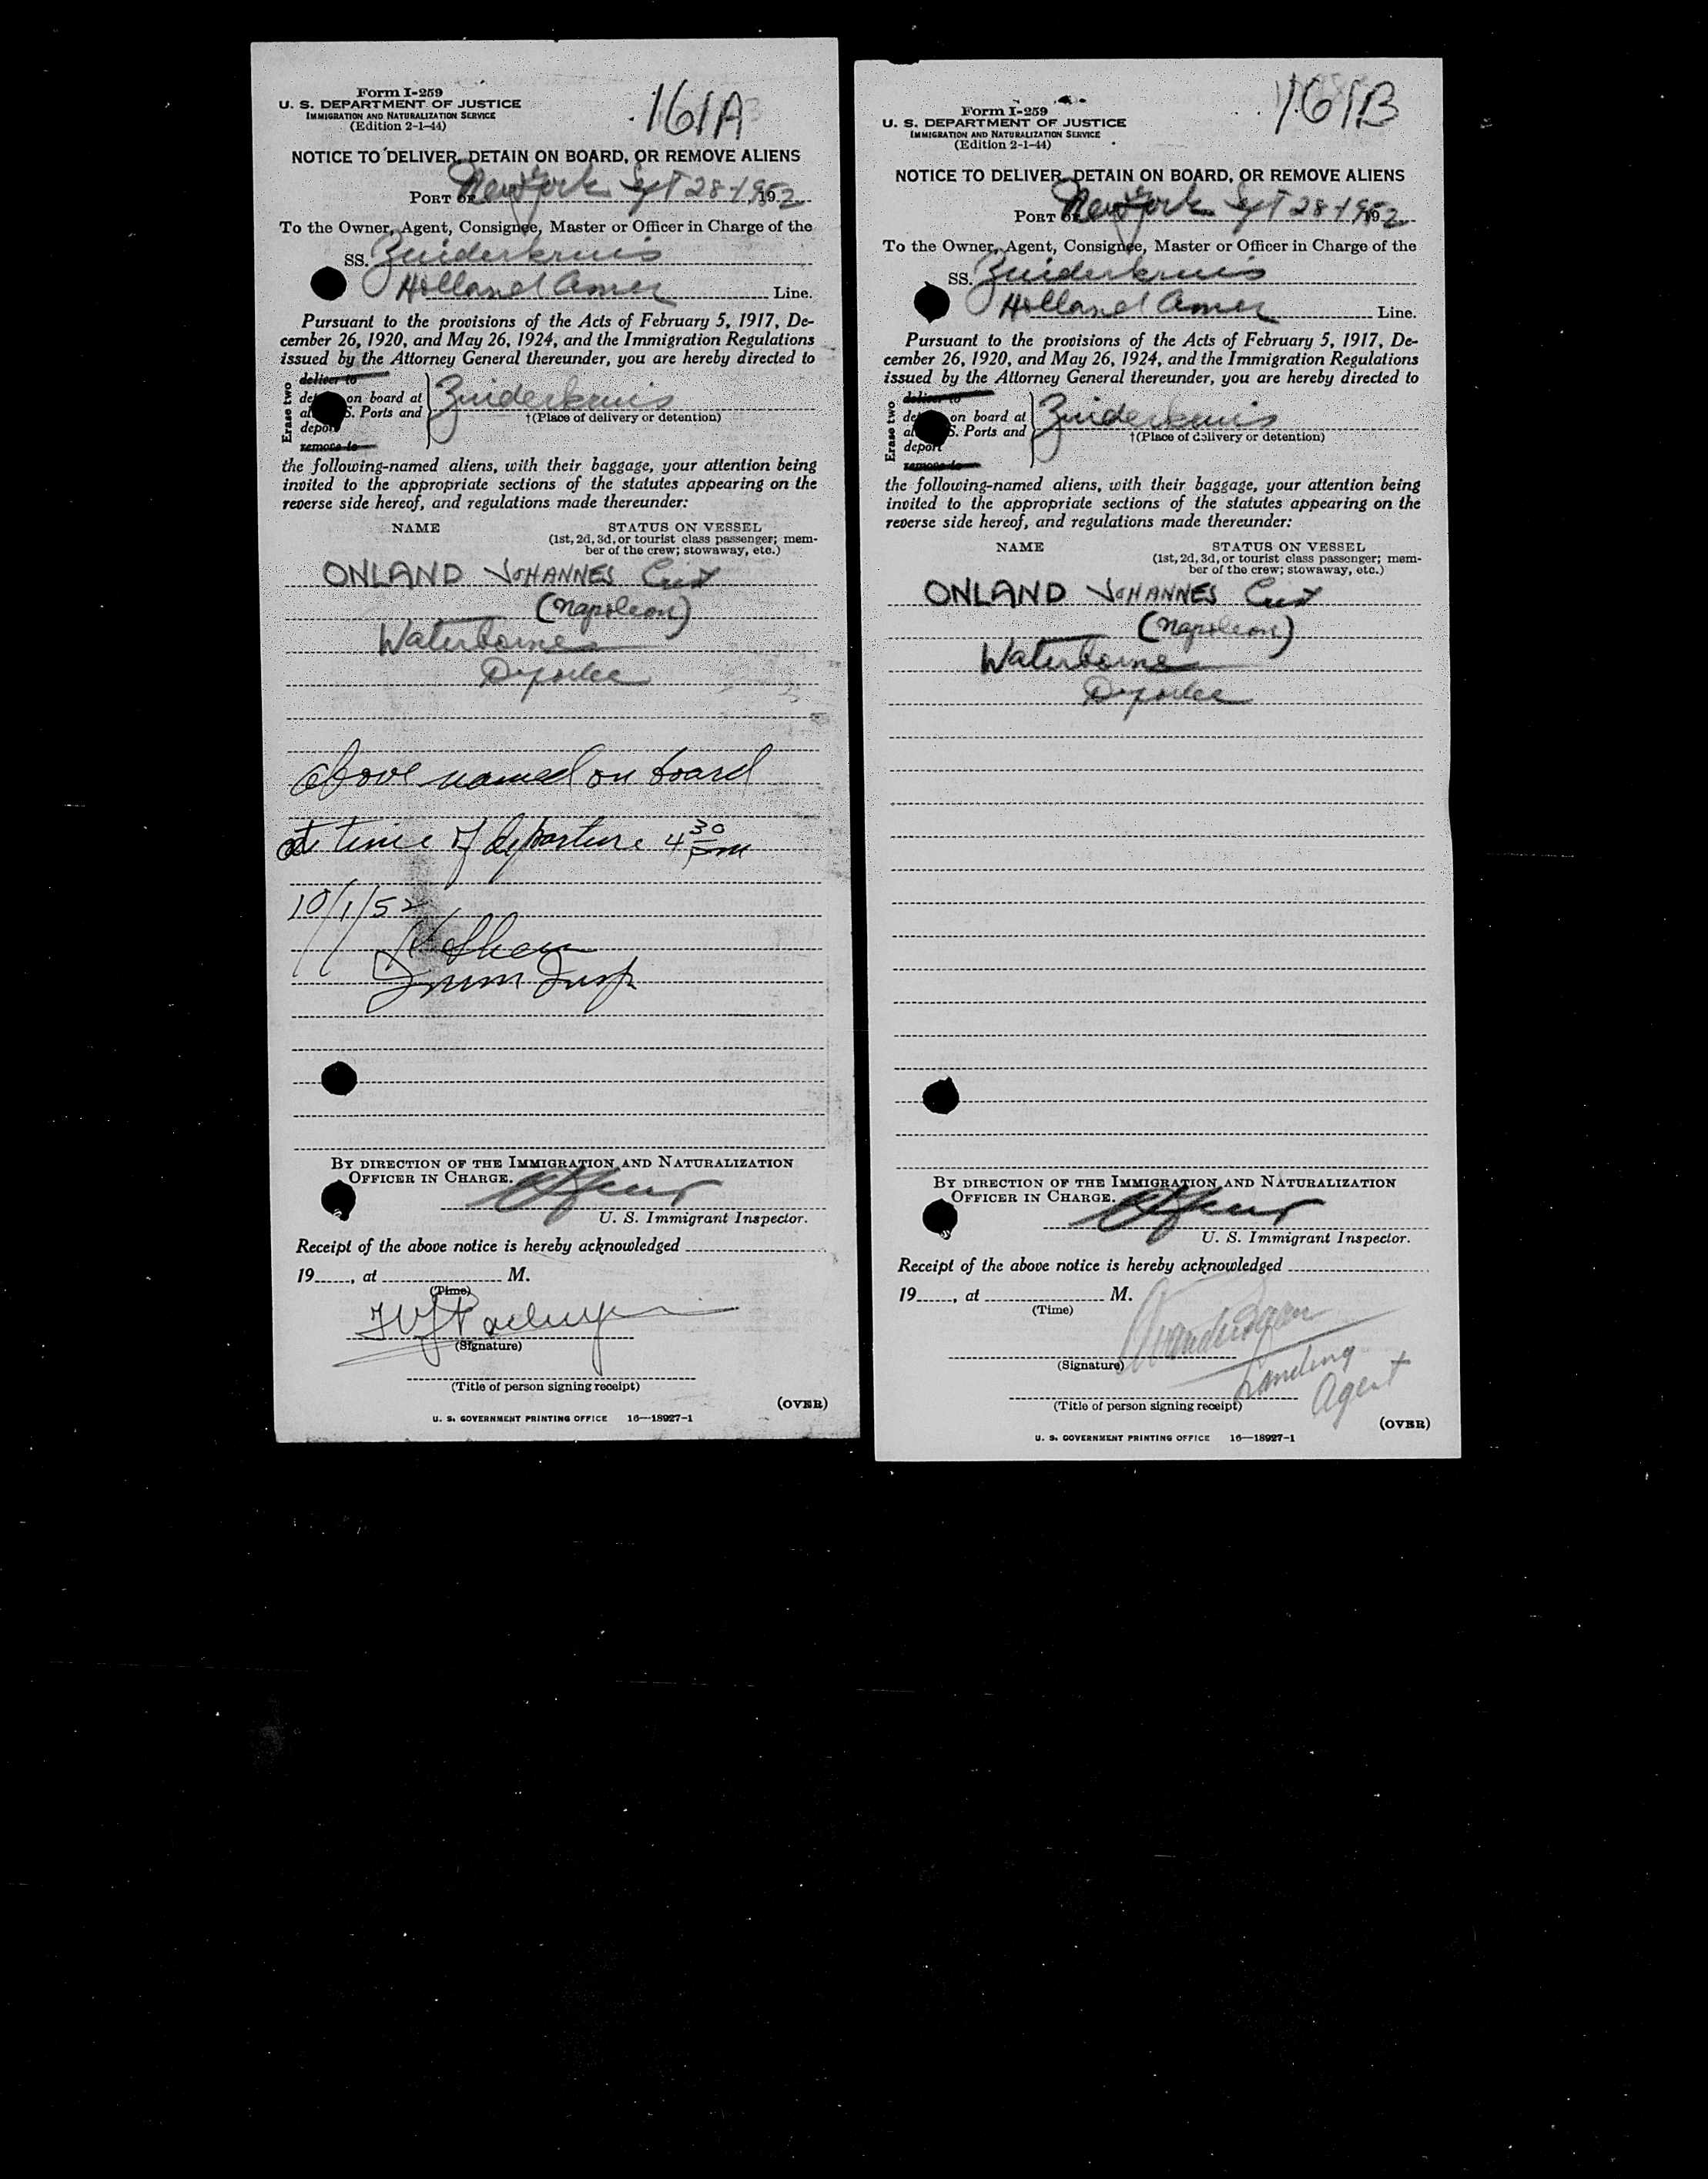 161A
Form I-259
U. S. DEPARTMENT OF JUSTICE
IMMIGRATION AND NATURALIZATION SERVICE
(Edition 2-1-44)
NOTICE TO DELIVER, DETAIN ON BOARD, OR REMOVE ALIENS
PORT OF New York Sept 28-1952, 19
To the Owner, Agent, Consignee, Master or Officer in Charge of the
SS. Zuiderkruis
Holland Amer Line.
Pursuant to the provisions of the Acts of February 5, 1917, De-
cember 26, 1920, and May 26, 1924, and the Immigration Regulations
issued by the Attorney General thereunder, you are hereby directed to
Erase two
deliver to
on board at
S. Ports and
deport
remove to
Zuiderkruis
†(Place of delivery or detention)
the following-named aliens, with their baggage, your attention being
invited to the appropriate sections of the statutes appearing on the
reverse side hereof, and regulations made thereunder:
NAME STATUS ON VESSEL
(1st, 2d, 3d, or tourist class passenger; mem-
ber of the crew; stowaway, etc.)
ONLAND JOHANNES
(Napoleon)
Waterborne
Deportee
Above named on board
at time of departure 4 30 pm
10/1/52
Shea
Imm Insp
BY DIRECTION OF THE IMMIGRATION AND NATURALIZATION
OFFICER IN CHARGE.
U. S. Immigrant Inspector.
Receipt of the above notice is hereby acknowledged
19 , at M.
(Time)
(Signature)
(Title of person signing receipt)
(OVER)
U. S. GOVERNMENT PRINTING OFFICE 16—18927-1
161B
Form I-259
U. S. DEPARTMENT OF JUSTICE
IMMIGRATION AND NATURALIZATION SERVICE
(Edition 2-1-44)
NOTICE TO DELIVER, DETAIN ON BOARD, OR REMOVE ALIENS
PORT OF New York Sept 28-1952
To the Owner, Agent, Consignee, Master or Officer in Charge of the
SS. Zuiderkruis
Holland Amer Line.
Pursuant to the provisions of the Acts of February 5, 1917, De-
cember 26, 1920, and May 26, 1924, and the Immigration Regulations
issued by the Attorney General thereunder, you are hereby directed to
Erase two
deliver to
on board at
S. Ports and
deport
remove to
Zuiderkruis
†(Place of delivery or detention)
the following-named aliens, with their baggage, your attention being
invited to the appropriate sections of the statutes appearing on the
reverse side hereof, and regulations made thereunder:
NAME STATUS ON VESSEL
(1st, 2d, 3d, or tourist class passenger; mem-
ber of the crew; stowaway, etc.)
ONLAND JOHANNES
(Napoleon)
Waterborne
Deportee
BY DIRECTION OF THE IMMIGRATION AND NATURALIZATION
OFFICER IN CHARGE.
U. S. Immigrant Inspector.
Receipt of the above notice is hereby acknowledged
19 , at M.
(Time)
(Signature)
Landing
Agent
(Title of person signing receipt)
(OVER)
U. S. GOVERNMENT PRINTING OFFICE 16—18927-1